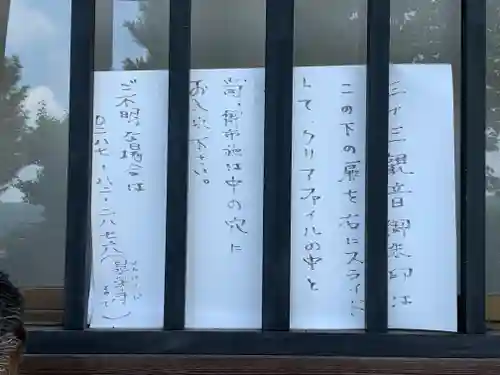 三十三観音御朱印は
この下の扉を右にスライド
して、クリアファイルの中と
尚、御布施は中の穴に
お入れ下さい。
ご不明な場合は
〇二八七・八二・二八七六（
まで）